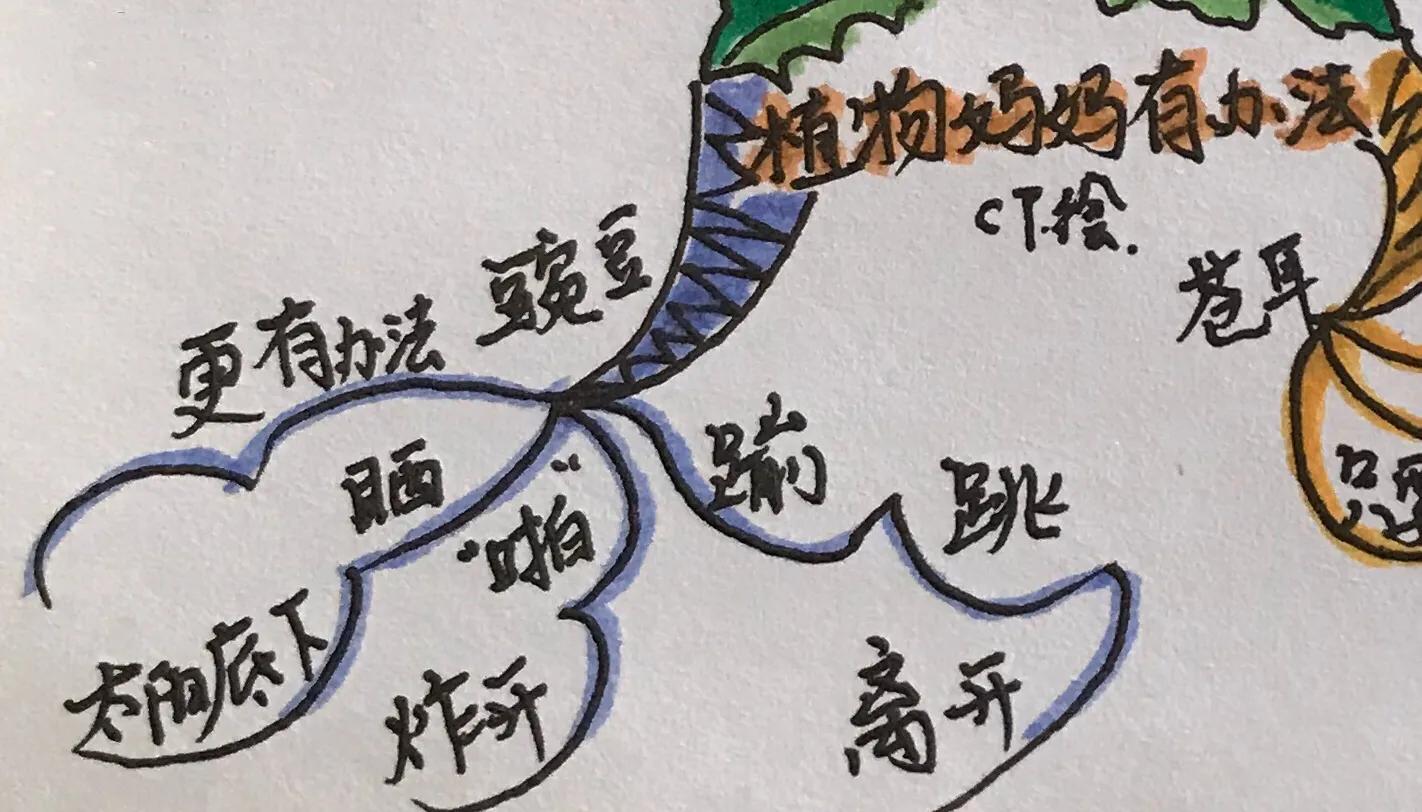 植物妈妈有办法
CT绘.
豌豆
苍耳
更有办法
晒
太阳底下
"啪"
炸开
蹦
跳
离开